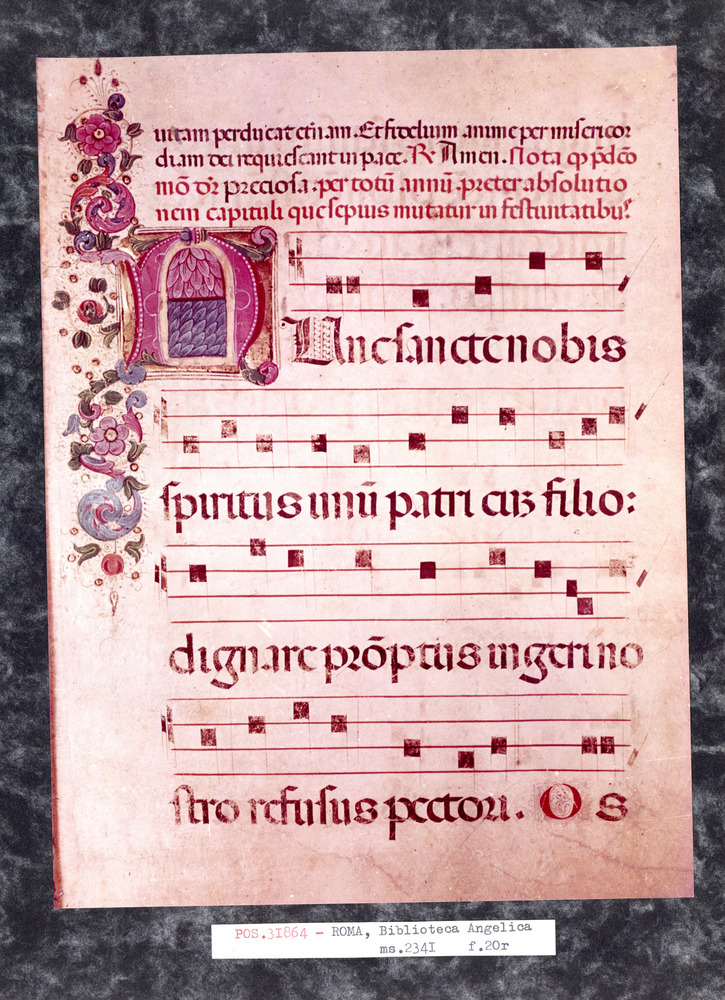 uitam perducat etnam. Et fidelium anime per misericor
diam dei requiescant in pace. R̷ Amen. Nota ꝙ p̄dcō
mō dr̄ preciosa .per totū annū .preter absolutio
nem capituli que sepius mutatur in festiuitatibus
Nunc sancte nobis
spiritus unū patri cuꝫ filio:
dignare prōptus ingeri no
stro refusus pectori. Os
POS.31864 - ROMA, Biblioteca Angelica
ms.2341 f.20r